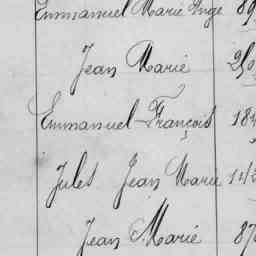 Emmanuel Marie Ange
Jean Marie
Emmanuel François 184
Jules Jean Marie
Jean Marie 87